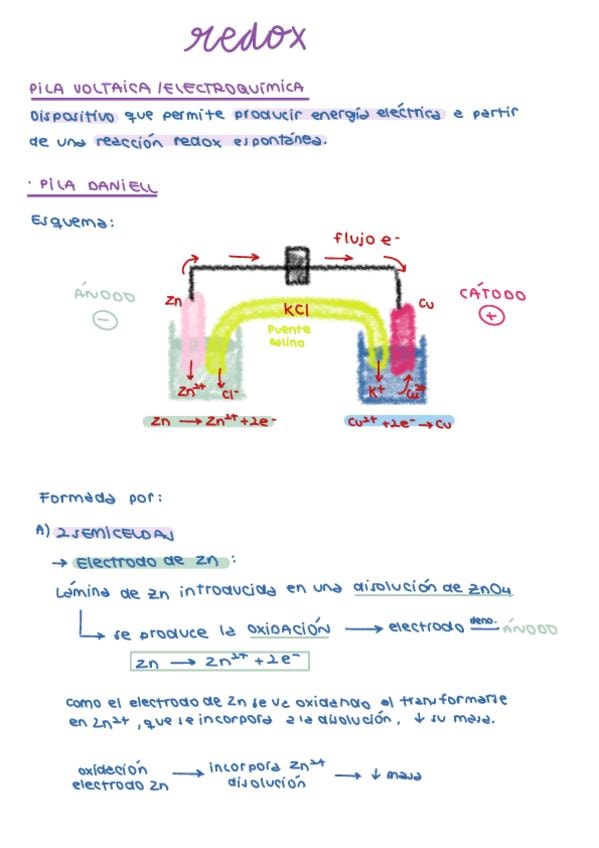 redox
PILA VOLTAICA/ELECTROQUÍMICA
Dispositivo que permite producir energía eléctrica a partir
de una reacción redox espontánea.
· PILA DANIELL
Esquema:
flujo e-
ÁNODO
Zn
KCl
Cu
CÁTODO
-
Puente
salino
+
Zn²⁺
Cl⁻
K⁺
Cu²⁺
Zn → Zn²⁺ + 2e⁻
Cu²⁺ + 2e⁻ → Cu
Formada por:
A) 2 SEMICELDAS
→ Electrodo de Zn :
Lámina de Zn introducida en una disolución de ZnO4
se produce la OXIDACIÓN → electrodo deno. ÁNODO
Zn → Zn²⁺ + 2e⁻
como el electrodo de Zn se va oxidando al transformarse
en Zn²⁺, que se incorpora a la disolución, ↓ su masa.
oxidación → incorpora Zn²⁺ → ↓ masa
electrodo Zn disolución